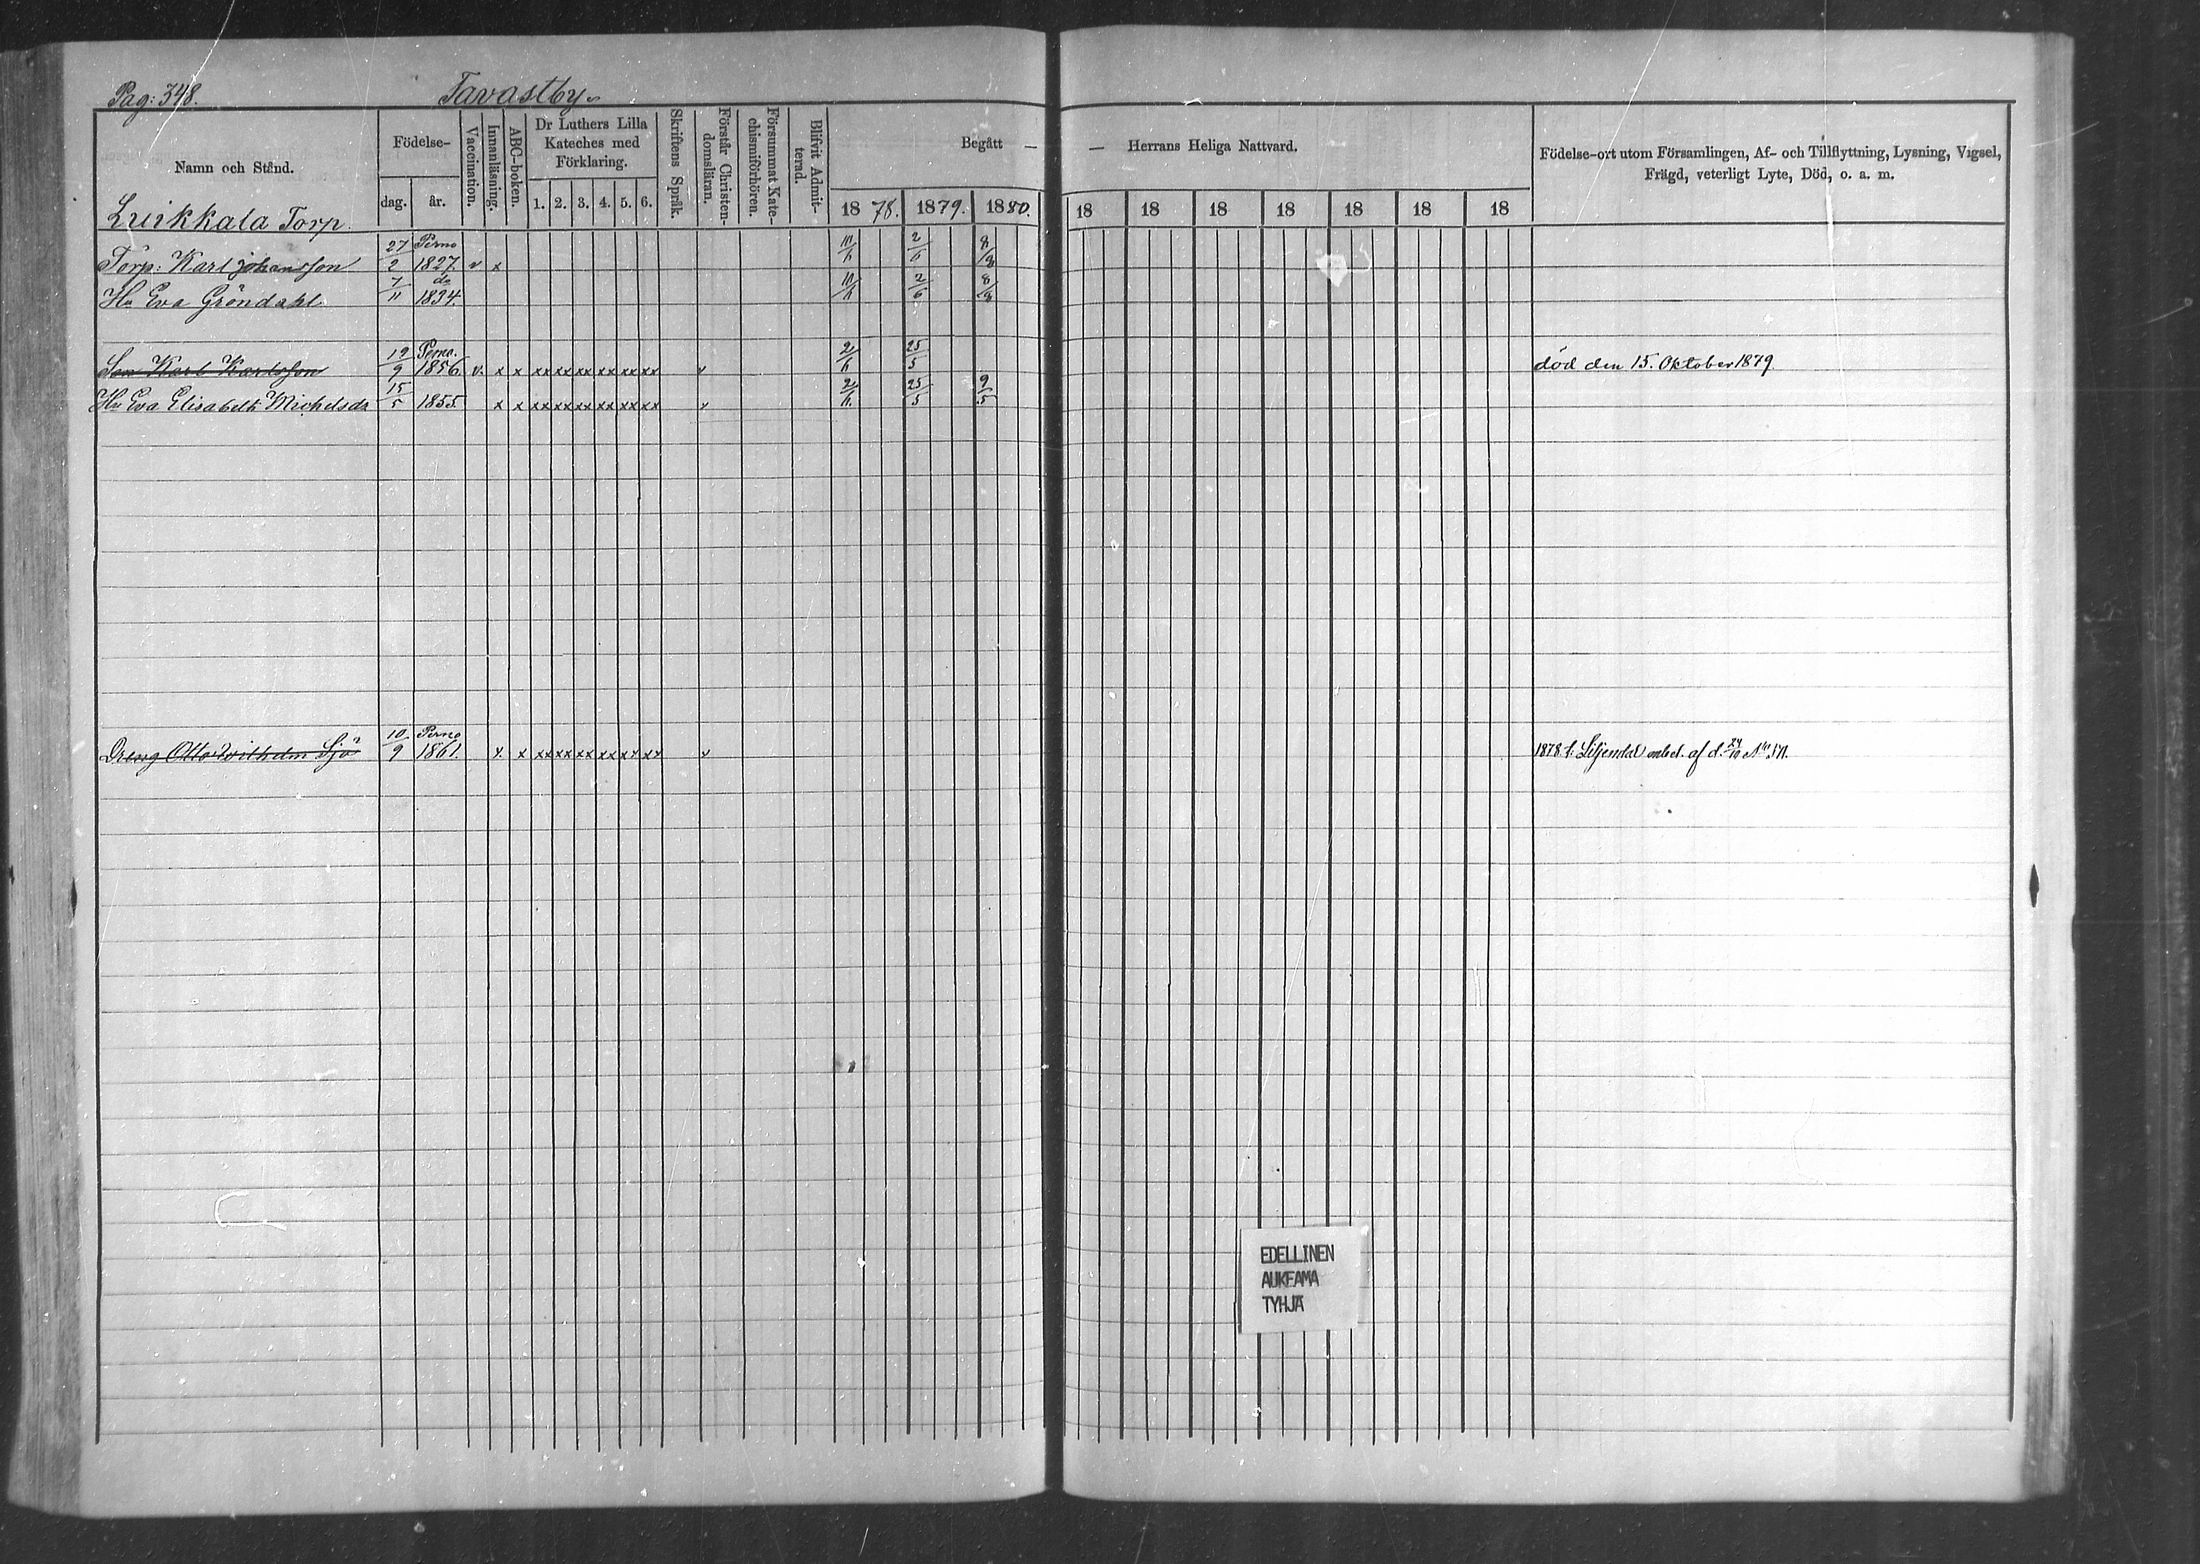 Pag: 348.
Tavastby
Namn och Stånd.
Födelse-
dag. år.
Vaccination.
Innanläsning.
ABC-boken.
Dr Luthers Lilla
Kateches med
Förklaring.
1. 2. 3. 4. 5. 6.
Skriftens Språk.
Förstår Christen-
domsläran.
Försummat Kate-
chismiförhören.
Blifvit Admit-
terad.
Begått —
— Herrans Heliga Nattvard.
1878. 1879. 1880.
18 18 18 18 18 18 18
Födelse-ort utom Församlingen, Af- och Tillflyttning, Lysning, Vigsel,
Frägd, veterligt Lyte, Död, o. a. m.
Luikkala Torp.
Torp: Karl Johansson 27/2 Perno 1827. v x 2/6
Hu Eva Gröndahl 7/11 do 1834. 2/6
Son Karl Karlsson 19/9 Perno. 1856. v. x x xx xx xx xx xx xx v 25/5 död den 15. Oktober 1879
Hu Eva Elisabeth Michelsdr 15/5 1855. x x xx xx xx xx xx xx v 25/5 9/5
Dreng Otto Wilhelm Sjö 10/9 Perno 1861. x x xx xx xx xx xx xx v 1878 t. Liljendal af d.
EDELLINEN
AUKEAMA
TYHJÄ